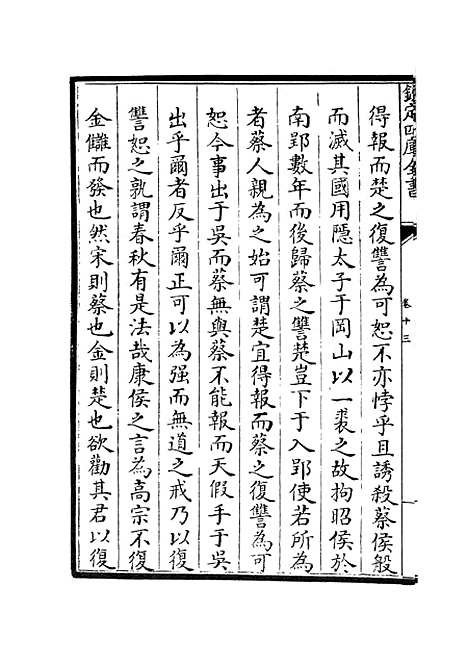 欽定四庫全書
卷十三
得報而楚之復讐為可恕不亦悖乎且誘殺蔡侯般
而滅其國用隱太子于岡山以一裘之故拘昭侯於
南郢數年而後歸蔡之讐楚豈下于入郢使若所為
者蔡人親為之始可謂楚宜得報而蔡之復讐為可
恕今事出于吳而蔡無與蔡不能報而天假手于吳
出乎爾者反乎爾正可以為强而無道之戒乃以復
讐恕之孰謂春秋有是法哉康侯之言為高宗不復
金讎而發也然宋則蔡也金則楚也欲勸其君以復